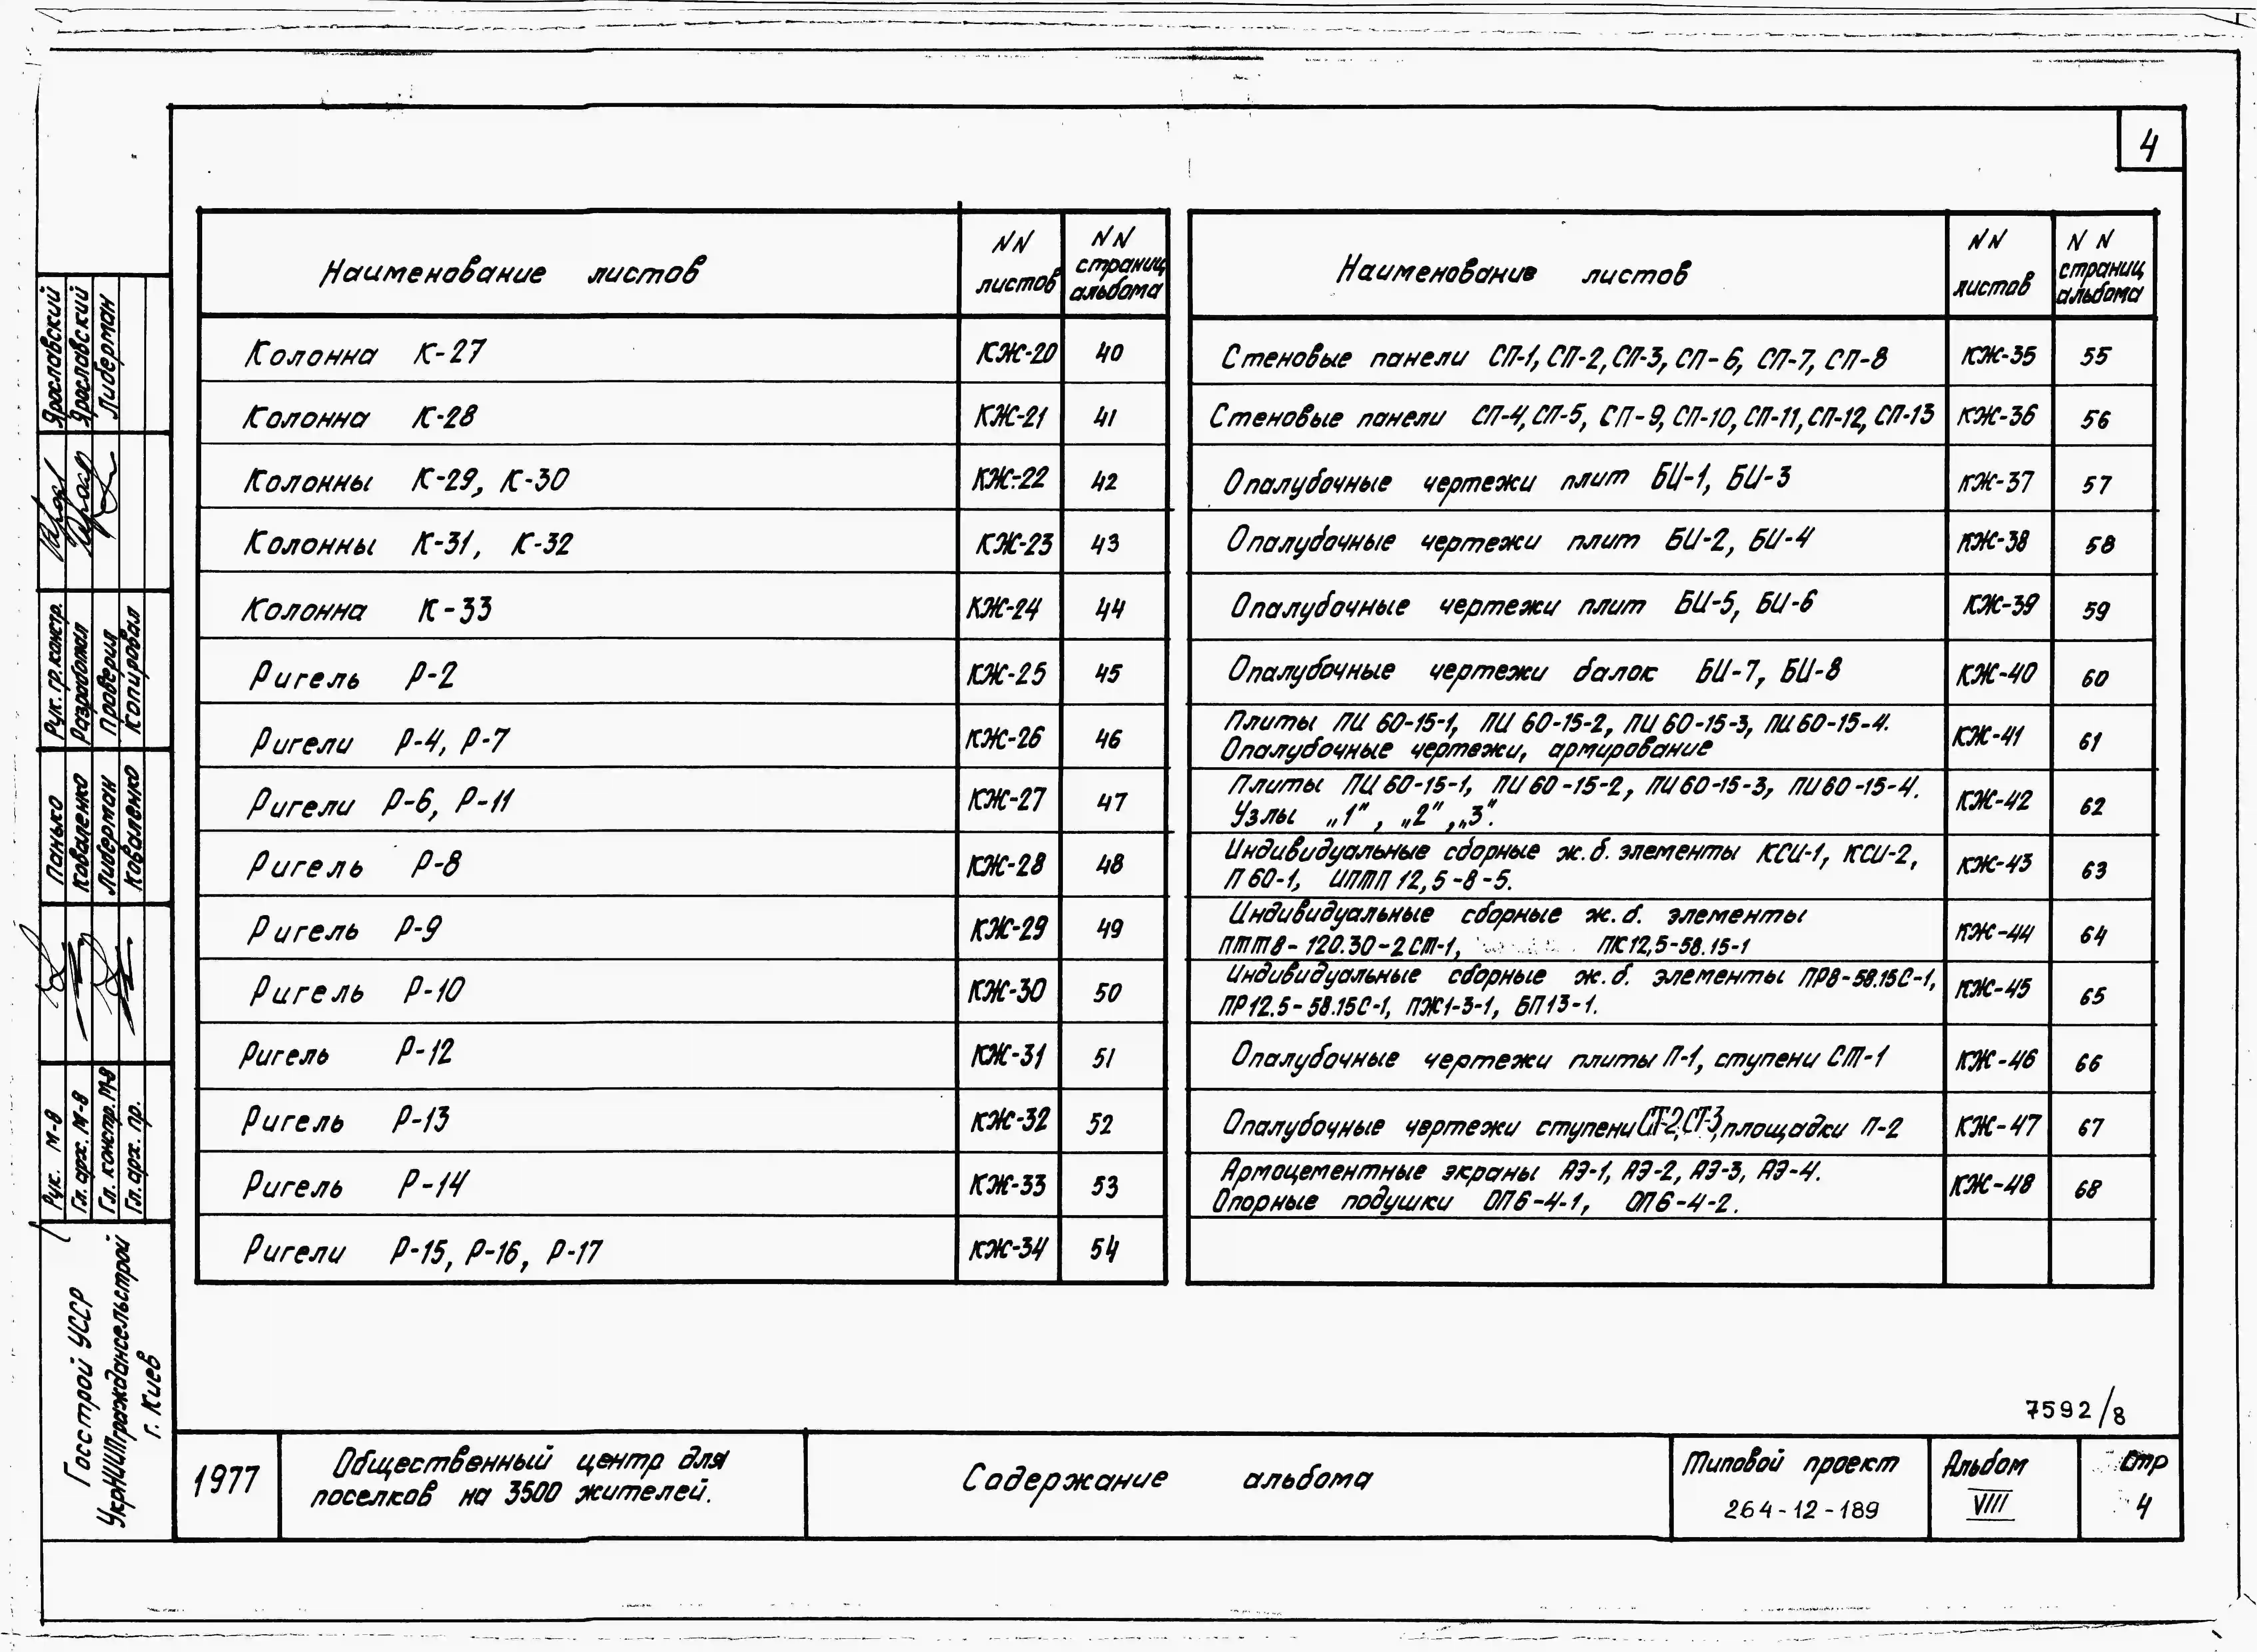 4
Наименование листов
NN листов
NN страниц альбома
Колонна К-27 КЖ-20 40
Колонна К-28 КЖ-21 41
Колонны К-29, К-30 КЖ-22 42
Колонны К-31, К-32 КЖ-23 43
Колонна К-33 КЖ-24 44
Ригель Р-2 КЖ-25 45
Ригели Р-4, Р-7 КЖ-26 46
Ригели Р-6, Р-11 КЖ-27 47
Ригель Р-8 КЖ-28 48
Ригель Р-9 КЖ-29 49
Ригель Р-10 КЖ-30 50
Ригель Р-12 КЖ-31 51
Ригель Р-13 КЖ-32 52
Ригель Р-14 КЖ-33 53
Ригели Р-15, Р-16, Р-17 КЖ-34 54
Наименование листов
NN листов
N N страниц альбома
Стеновые панели СП-1, СП-2, СП-3, СП-6, СП-7, СП-8 КЖ-35 55
Стеновые панели СП-4, СП-5, СП-9, СП-10, СП-11, СП-12, СП-13 КЖ-36 56
Опалубочные чертежи плит БИ-1, БИ-3 КЖ-37 57
Опалубочные чертежи плит БИ-2, БИ-4 КЖ-38 58
Опалубочные чертежи плит БИ-5, БИ-6 КЖ-39 59
Опалубочные чертежи балок БИ-7, БИ-8 КЖ-40 60
Плиты ПИ 60-15-1, ПИ 60-15-2, ПИ 60-15-3, ПИ 60-15-4.
Опалубочные чертежи, армирование КЖ-41 61
Плиты ПИ 60-15-1, ПИ 60-15-2, ПИ 60-15-3, ПИ 60-15-4.
Узлы „1", „2", „3". КЖ-42 62
Индивидуальные сборные ж.б. элементы КСИ-1, КСИ-2,
П 60-1, ИПТП 12,5-8-5. КЖ-43 63
Индивидуальные сборные ж.б. элементы
ПТТ8-120.30-2СТ-1, ПК12,5-58.15-1 КЖ-44 64
Индивидуальные сборные ж.б. элементы ПР8-58.15С-1,
ПР12.5-58.15С-1, ПЖ1-3-1, БП13-1. КЖ-45 65
Опалубочные чертежи плиты П-1, ступени СТ-1 КЖ-46 66
Опалубочные чертежи ступени СТ-2, СТ-3, площадки П-2 КЖ-47 67
Армоцементные экраны АЭ-1, АЭ-2, АЭ-3, АЭ-4.
Опорные подушки ОП6-4-1, ОП6-4-2. КЖ-48 68
7592/8
1977
Общественный центр для
поселков на 3500 жителей.
Содержание альбома
Типовой проект
264-12-189
Альбом
VIII
Стр
4
Госстрой УССР
УкрНИИПграждансельстрой
г. Киев
Рук. М-8 Панько
Гл. арх. М-8 Коваленко
Гл. констр. М-8 Либерман
Гл. арх. пр. Коваленко
Рук. гр. констр. Ярославский
Разработал Ярославский
Проверил Либерман
Копировал